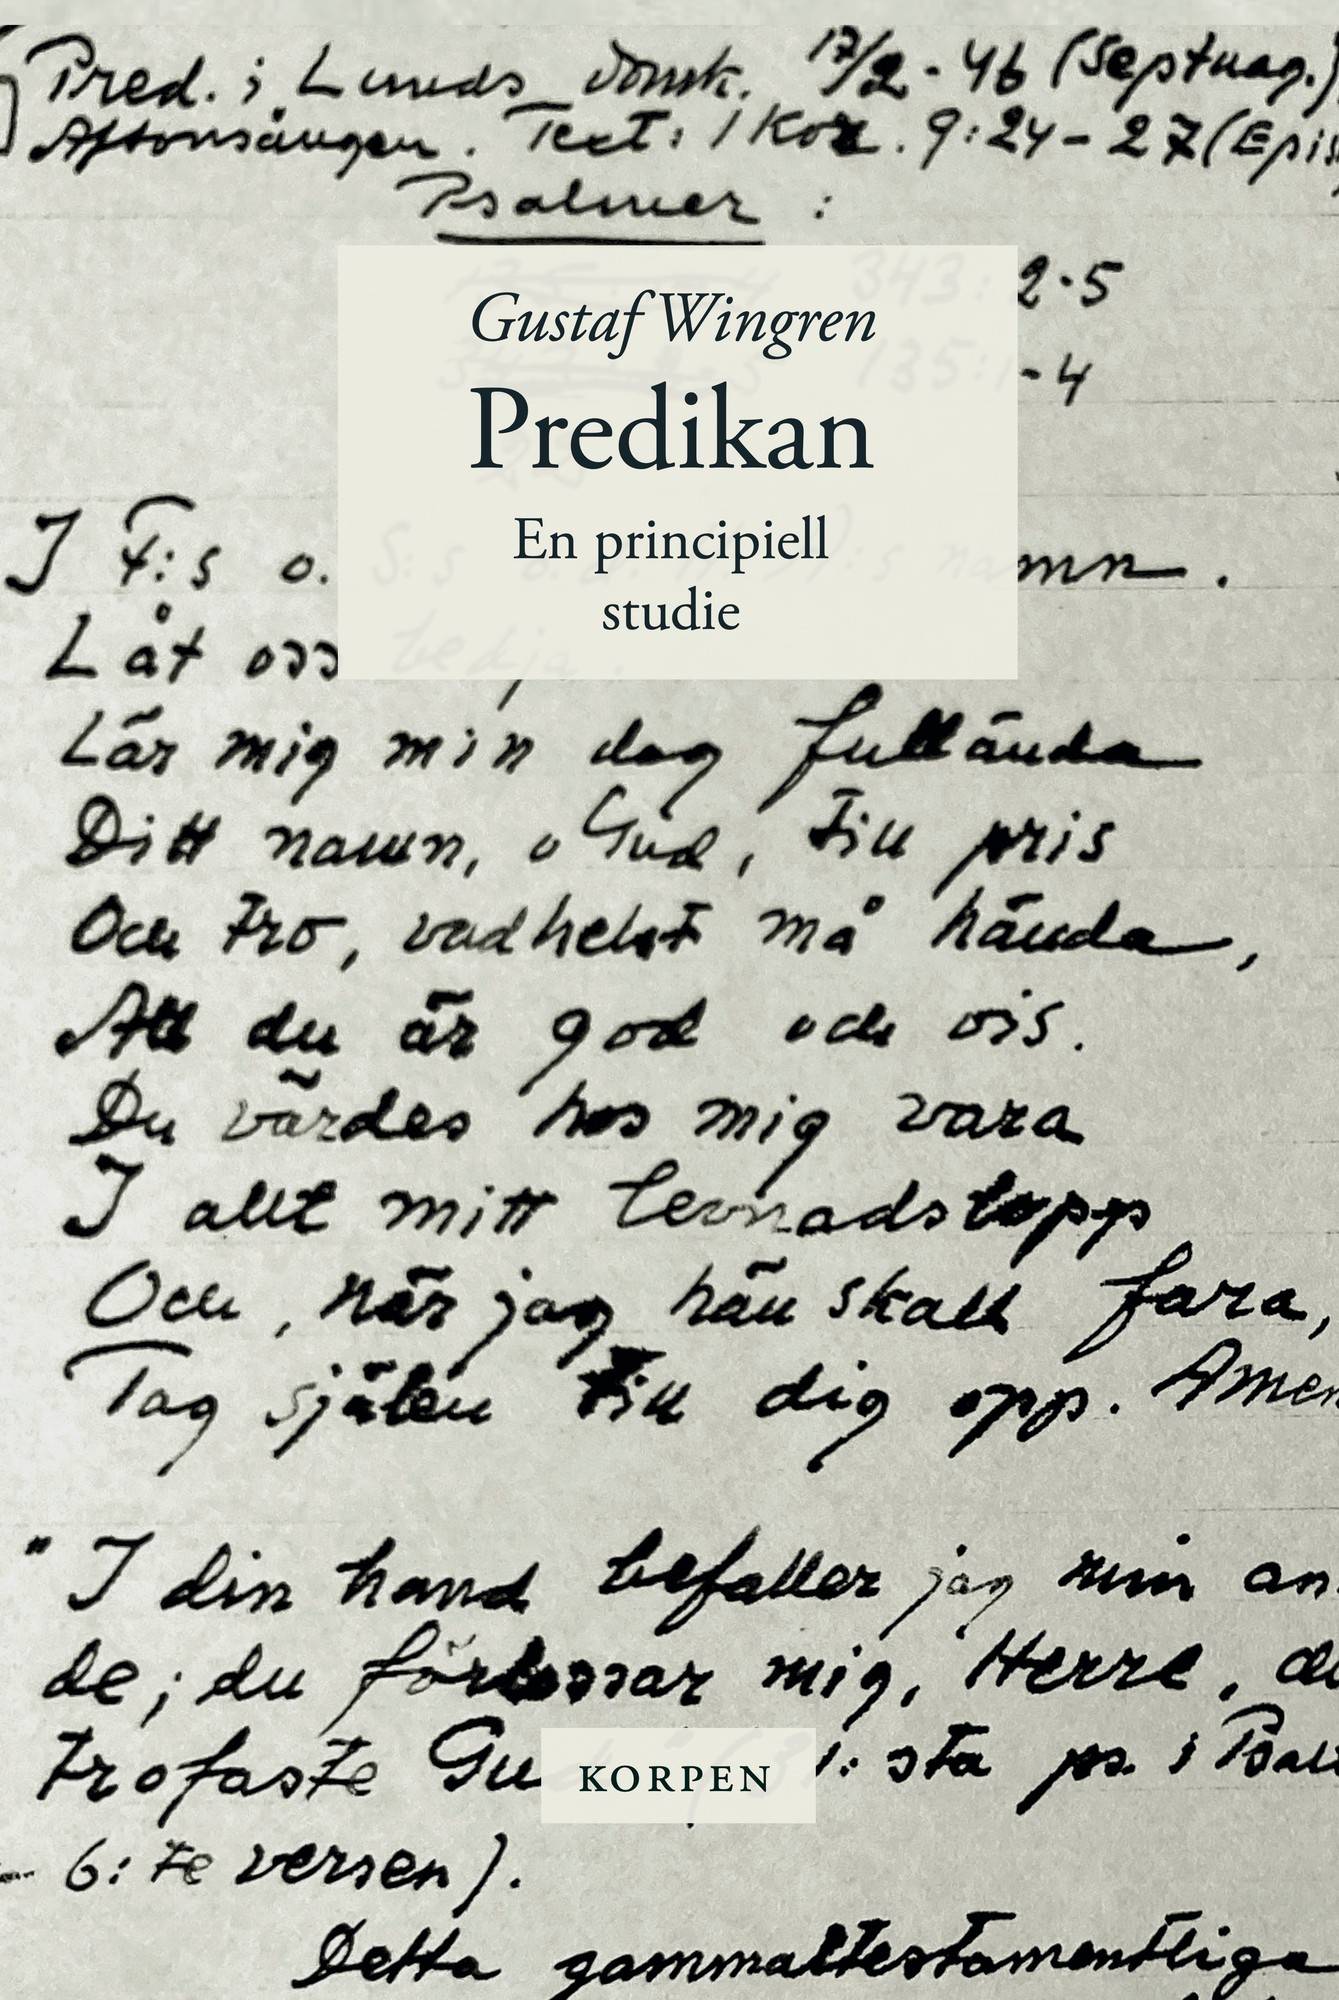 Pred. i Lunds domk. 17/2 - 46 (Septuag.)
Aftonsången. Text: 1 Kor. 9:24 - 27 (Epis
Psalmer :
343: 2-5
135:1-4
Gustaf Wingren
Predikan
En principiell
studie
I F:s o. S:s o. :s namn.
Låt oss bedja.
Lär mig min dag fullända
Ditt namn, o Gud, till pris
Och tro, vad helst må hända,
Att du är god och vis.
Du värdes hos mig vara
I allt mitt levnadslopp
Och, när jag hän skall fara,
Tag själen till dig opp. Amen
"I din hand befaller jag min an-
de; du förlossar mig, Herre, du
trofaste Gu 1: sta ps. i Psalt
- 6: te versen).
KORPEN
Detta gammaltestamentliga